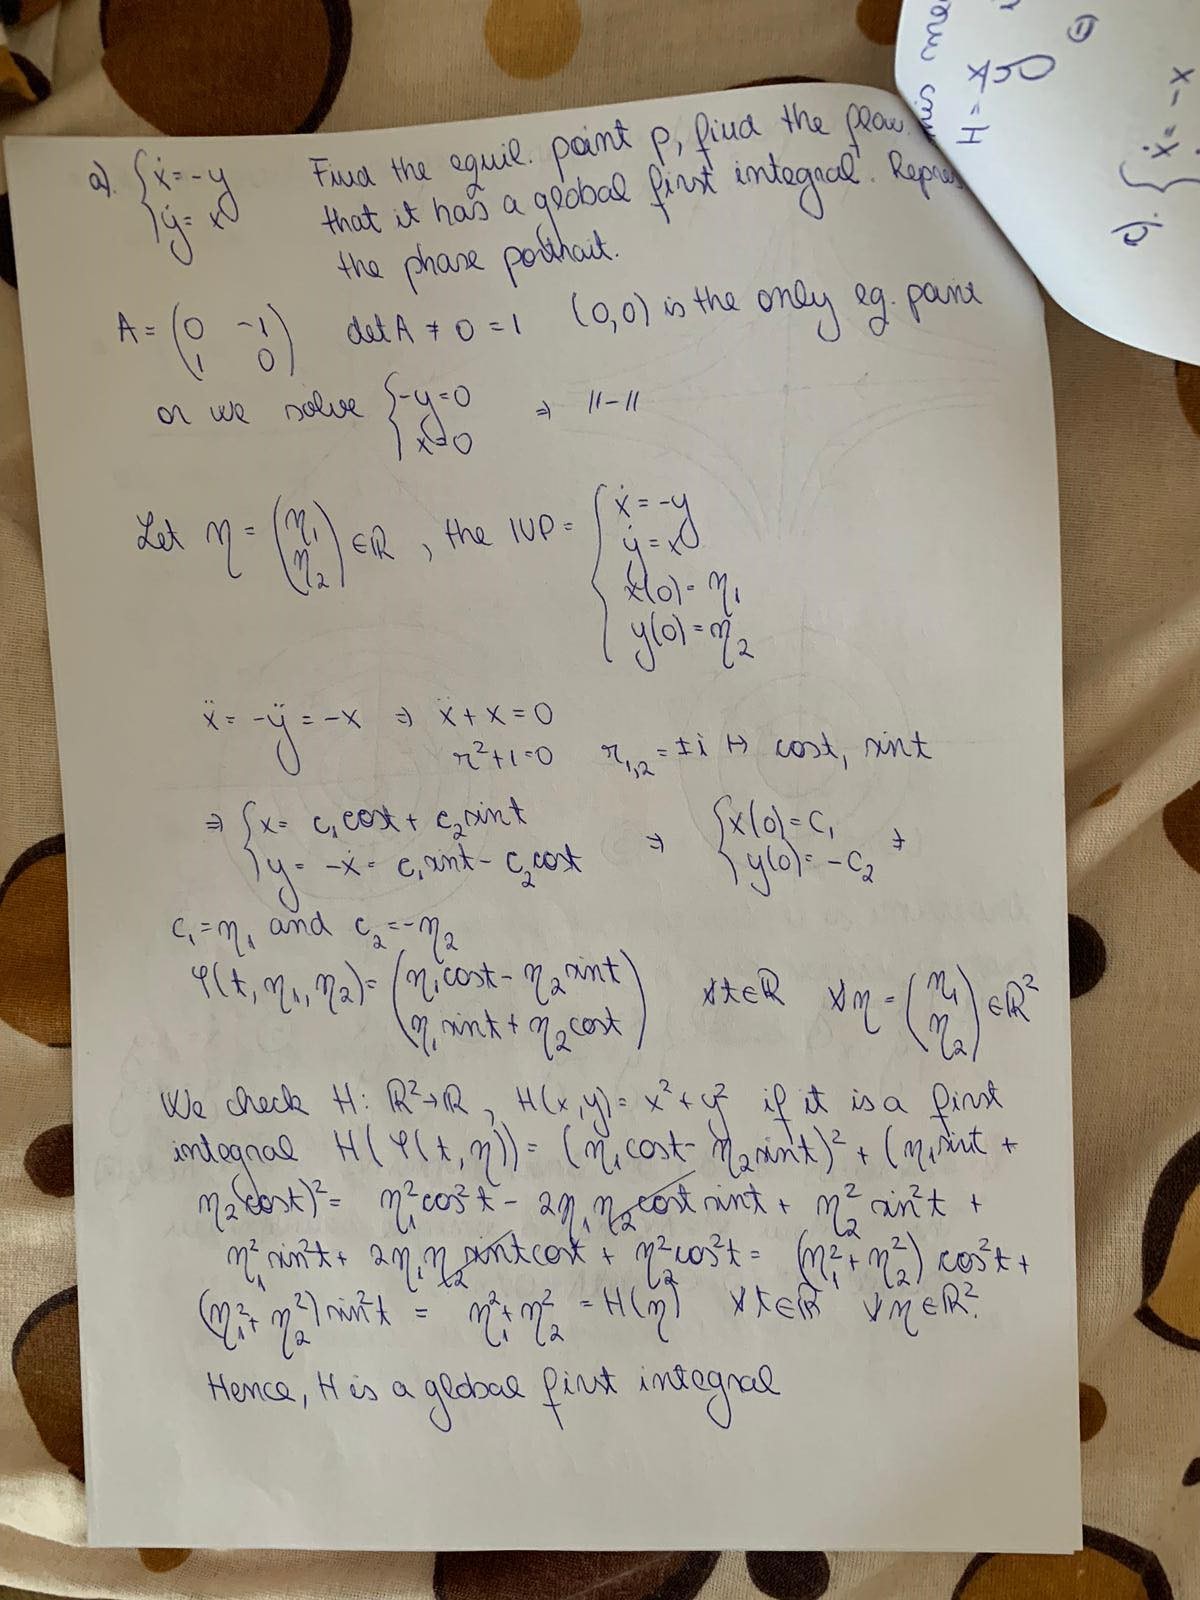 a). {ẋ = -y Find the equil. point p, find the flow.
ẏ = x that it has a global first integral. Repres
the phase portrait.
A = (0 -1; 1 0) det A ≠ 0 = 1 (0,0) is the only eq. point
or we solve {-y=0; x=0 ⇒ ||-||
Let η = (η₁; η₂) ∈ ℝ, the IVP = {ẋ = -y
ẏ = x
x(0) = η₁
y(0) = η₂
ẍ = -ÿ = -x ⇒ ẍ + x = 0
r² + 1 = 0 r₁,₂ = ±i ↦ cost, sint
⇒ {x = c₁cost + c₂sint ⇒ {x(0) = c₁ ⇒
y = -ẋ = c₁sint - c₂cost y(0) = -c₂
c₁ = η₁ and c₂ = -η₂
φ(t, η₁, η₂) = (η₁cost - η₂sint; η₁sint + η₂cost) ∀t∈ℝ ∀η = (η₁; η₂) ∈ℝ²
We check H: ℝ²→ℝ, H(x,y) = x² + y² if it is a first
integral H(φ(t,η)) = (η₁cost - η₂sint)² + (η₁sint +
η₂cost)² = η₁²cos²t - 2η₁η₂costsint + η₂²sin²t +
η₁²sin²t + 2η₁η₂sintcost + η₂²cos²t = (η₁² + η₂²) cos²t +
(η₁² + η₂²)sin²t = η₁² + η₂² = H(η) ∀t∈ℝ ∀η∈ℝ².
Hence, H is a global first integral
H = x
b). {ẋ = -x